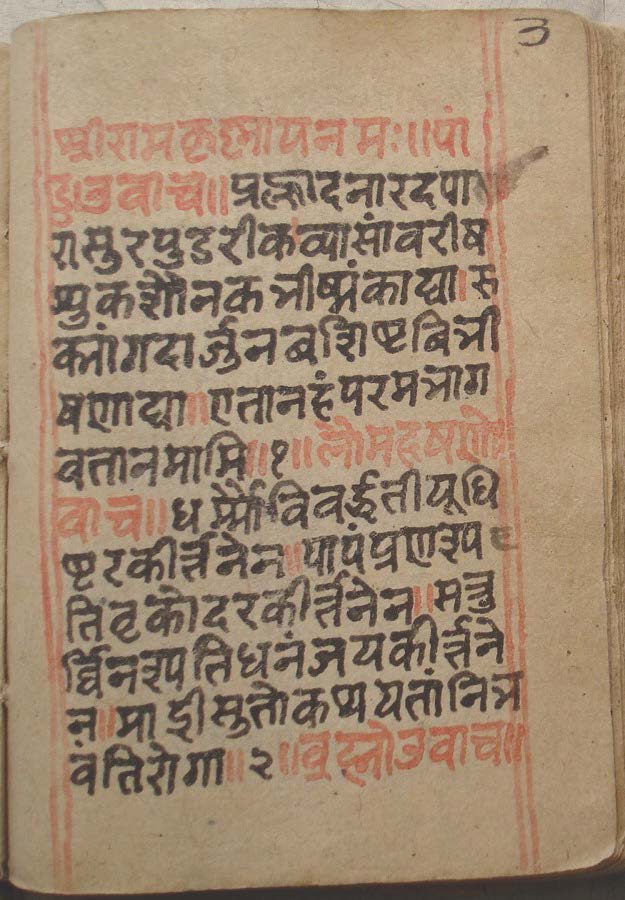 3
श्रीरामकृष्णायनमः॥पां
डुउवाच॥प्रह्लादनारदपा
रासुरपुडरीकव्यासांवरीष
श्युकशौनकभीष्मंकाद्या।रु
क्मांगदार्जुनबशिष्टबिभी
षणाद्या॥एतानहंपरमभाग
वतानमामि॥१॥लोमहषणो
वाच॥धर्म्मोविवर्द्धतीयूधि
ष्टरकीर्त्तनेन॥पापंप्रणश्य
तिवृकोदरकीर्त्तनेन॥सत्रु
र्व्विनश्यतिधनंजयकीर्त्तने
न॥माद्रीसुतोकथ्ययतांनिभ
वंतिरोगा॥२॥वुह्नोउवाच॥